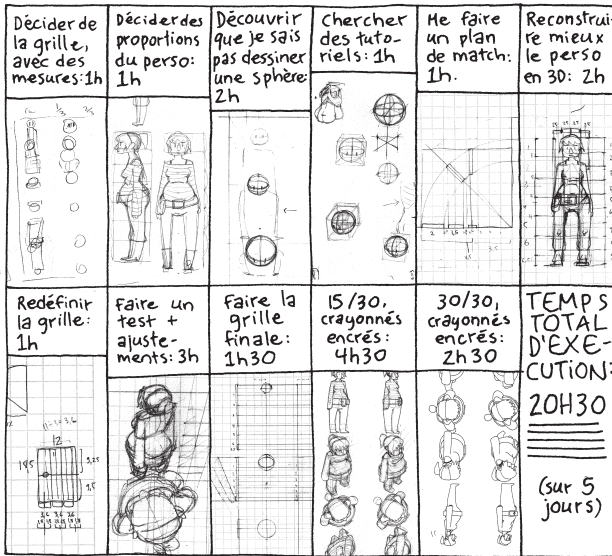 Décider de
la grille,
avec des
mesures: 1h
Décider des
proportions
du perso:
1h
Découvrir
que je sais
pas dessiner
une sphère:
2h
Chercher
des tuto-
riels: 1h
Me faire
un plan
de match:
1h.
Reconstrui-
re mieux
le perso
en 3D: 2h
Redéfinir
la grille:
1h
Faire un
test +
ajuste-
ments: 3h
Faire la
grille
finale:
1h30
15/30,
crayonnés
encrés:
4h30
30/30,
crayonnés
encrés:
2h30
TEMPS
TOTAL
D'EXÉ-
CUTION:
20H30
(sur 5
jours)
12
18,5
9,25